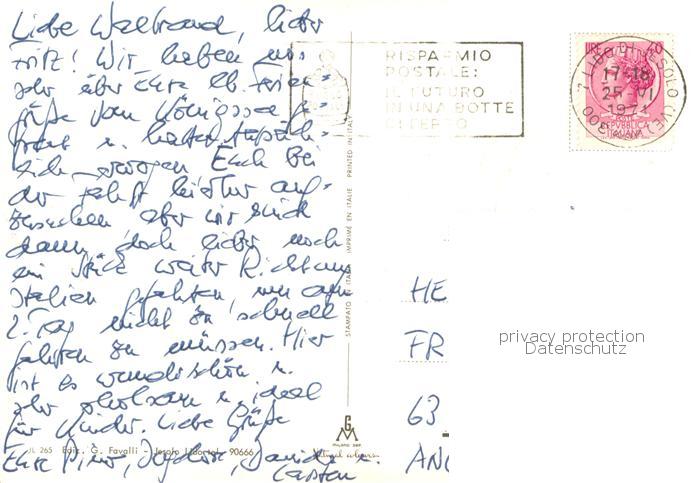 Liebe Waltraud, lieber
Fritz! Wir haben uns
sehr über Eure lb. Ferien-
grüße vom Königssee ge-
freut u. hatten tatsäch-
lich erwogen Euch bei
der Fahrt hierher auf-
zusuchen aber wir sind
dann doch lieber noch
ein Stück weiter Richtung
Italien gefahren, um am
2. Tag nicht zu schnell
fahren zu müssen. Hier
ist es wunderschön u.
sehr erholsam u. ideal
für Kinder. Liebe Grüße
Eure
Daniela u.
Carsten
265 Ediz. G. Favalli - Jesolo Lidorto 90666
STAMPATO IN ITALIA IMPRIMÉ EN ITALIE PRINTED IN ITALY
GM
MILANO
RISPARMIO
POSTALE:
IL FUTURO
IN UNA BOTTE
DI FERRO
LIRE 40
POSTE
REPUBBLICA
ITALIANA
LIDO DI JESOLO (VE)
17-18
25 VI
1974
HE
FR
63
AN
privacy protection
Datenschutz